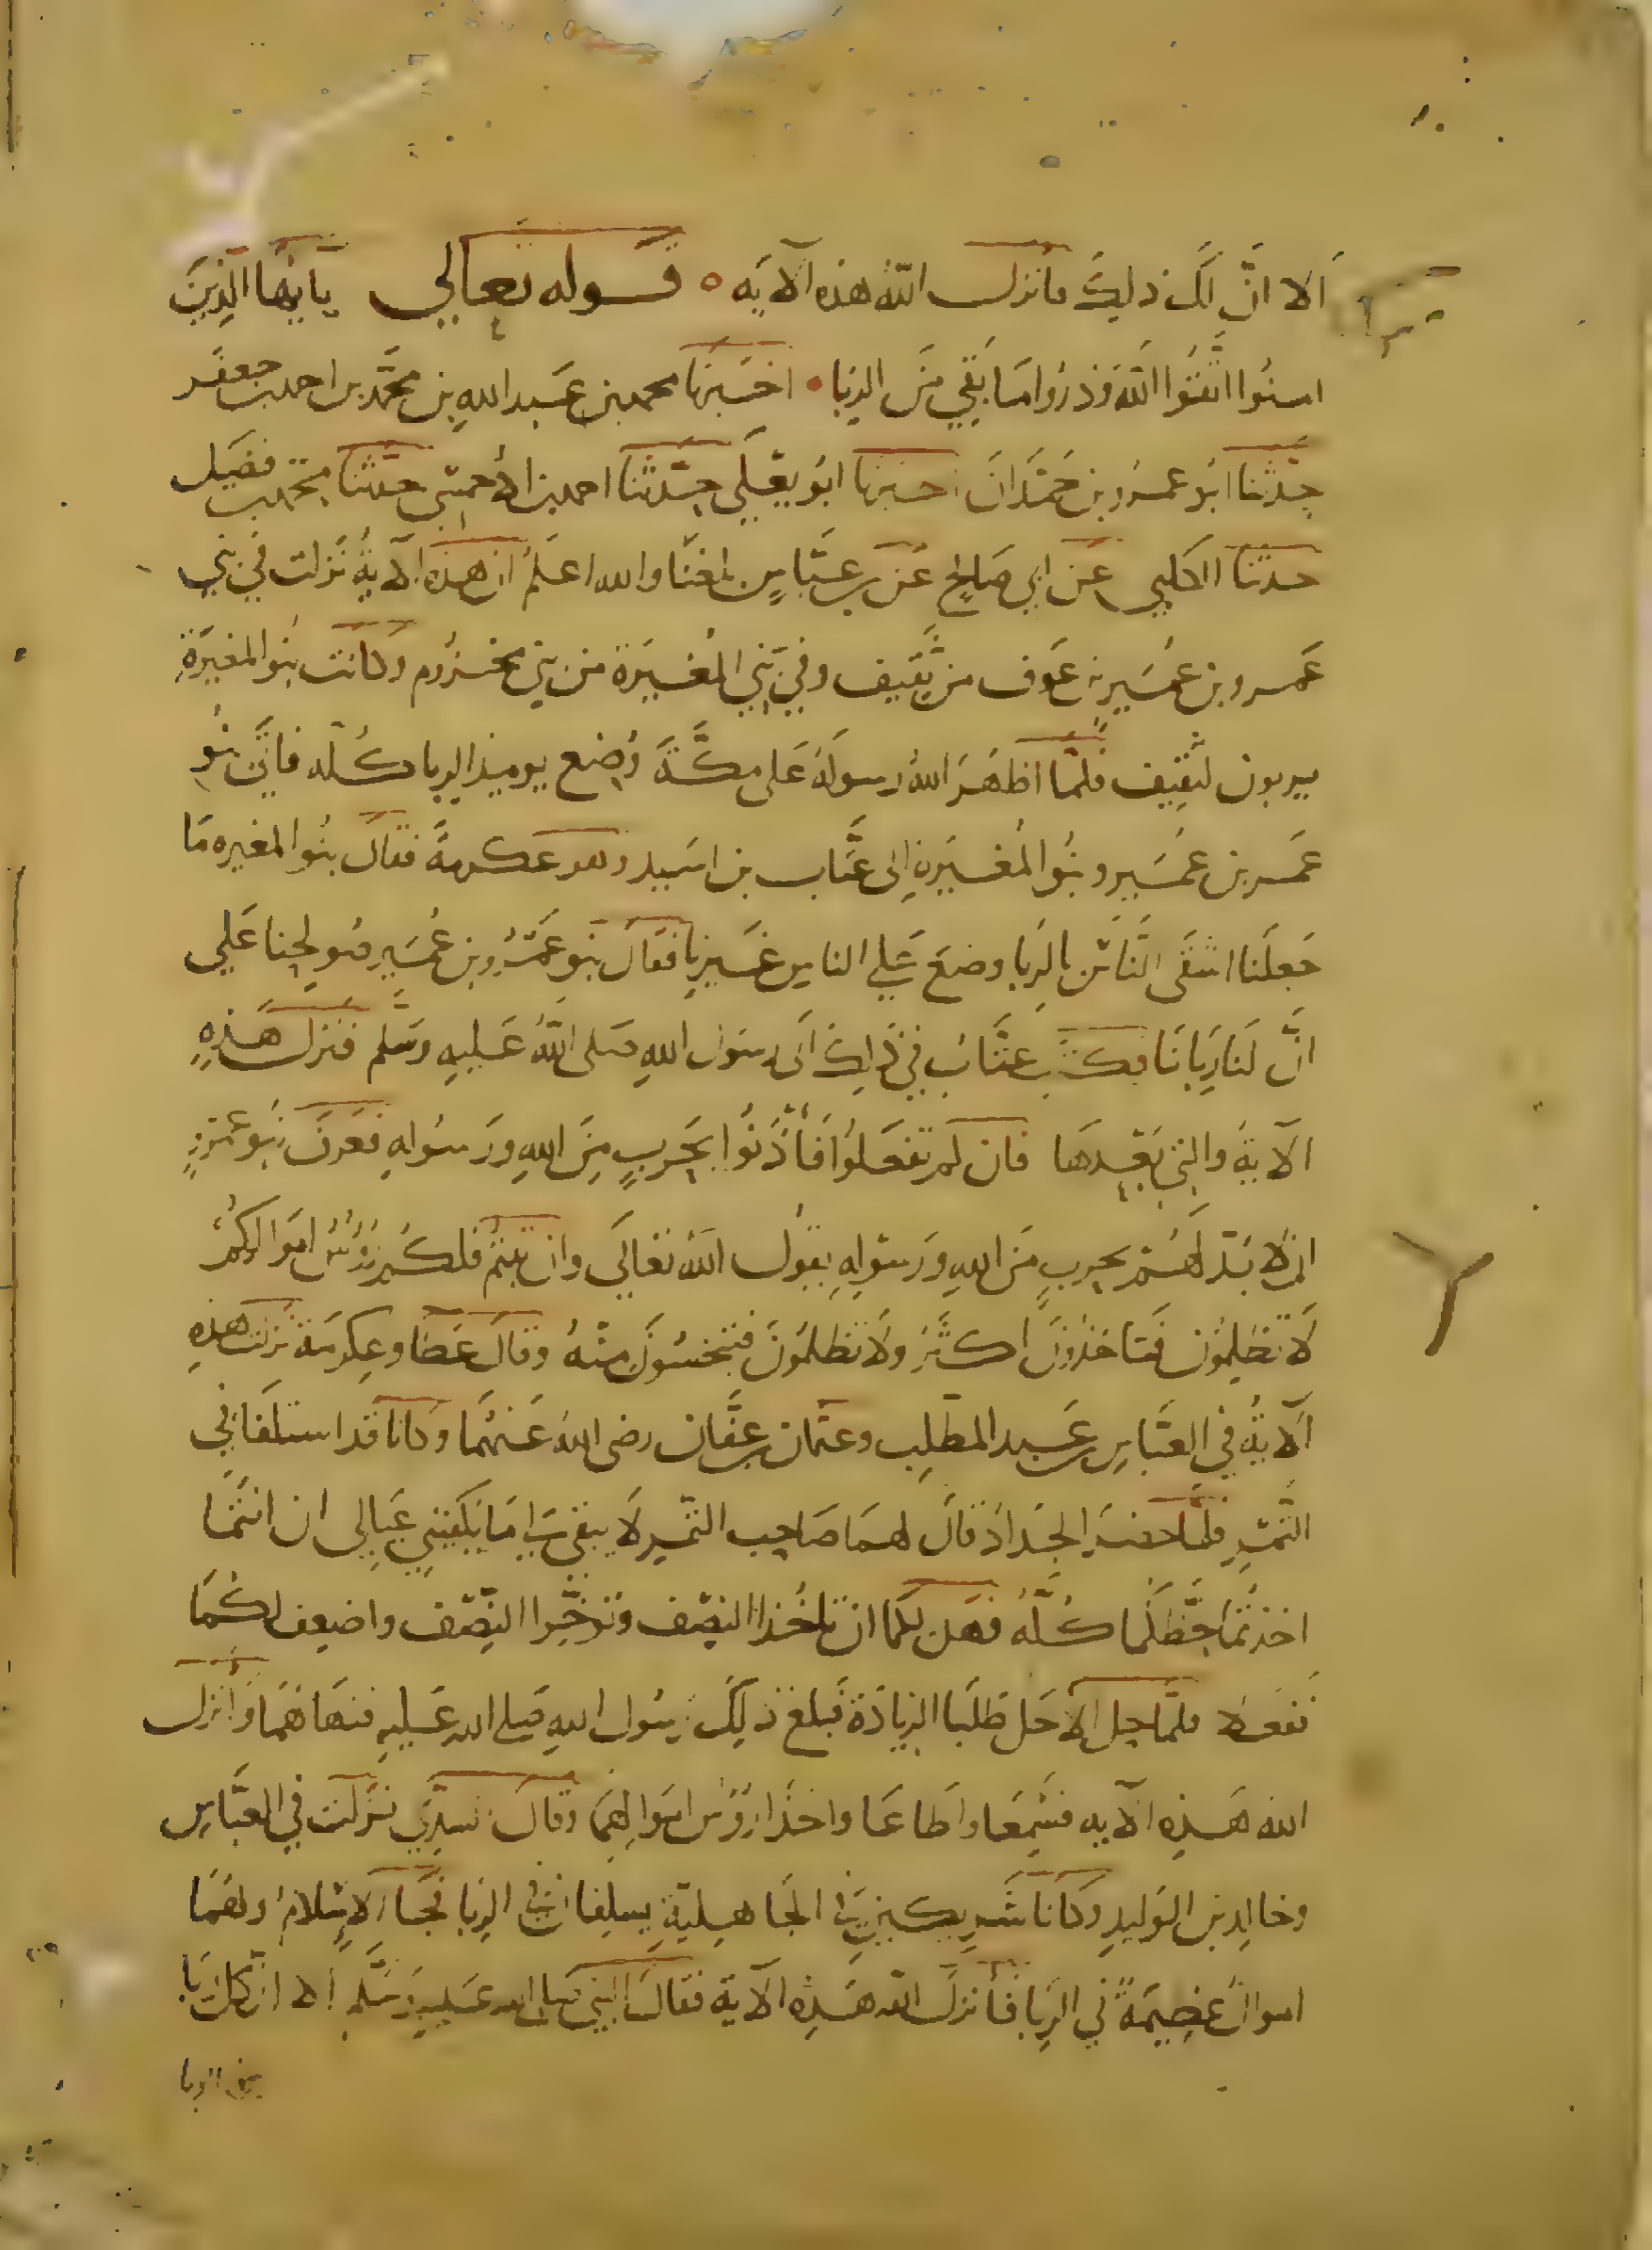 الا انَّ لك ذلك فانزل الله هذه الآية ٥ قوله تعالى يايها الذين
امنوا اتقوا الله وذروا ما بقي من الربا • اخبرنا محمد بن عبد الله بن محمد بن احمد بن جعفر
حدثنا ابو عمرو بن حمدان اخبرنا ابو يعلي حدثنا احمد بن الاحمسي حدثنا محمد بن فضيل
حدثنا الكلبي عن ابي صالح عن بن عباس بلغنا والله اعلم ان هذه الآية نزلت في بني
عمرو بن عمير بن عوف من ثقيف وفي بني المغيرة من بني مخزوم وكانت بنو المغيرة
يربون لثقيف فلما اظهر الله رسوله على مكة وضع يوميذ الربا كله فاتى بنو
عمر بن عمير وبنو المغيرة الى عتاب بن اسيد وهو عكرمة فقال بنو المغيره ما
جعلنا اشقى الناس بالربا وضع علي الناس غيرنا فقال بنو عمرو بن عمير صولحنا علي
ان لنا ربانا فكتب عتاب في ذلك الى رسول الله صلى الله عليه وسلم فنزل هذه
الآية والتي بعدها فان لم تفعلوا فأذنوا بحرب من الله ورسوله فعرف بنو عمرو
ان لا يد لهم بحرب من الله ورسوله يقول الله تعالى وان تبتم فلكم رؤس اموالكم
لا تظلمون فتاخذون اكثر ولا تظلمون فتبخسون منه وقال عطا وعكرمة نزلت هذه
الآية في العباس بن عبد المطلب وعثمان بن عفان رضى الله عنهما وكانا قد استلفا في
التمر فلما حضر الجداد قال لهما صاحب التمر لا يبقى لي ما يكفيني عيالي ان انتما
اخذتما حظكما كله فهل لكما ان تاخذا النصف وتوخرا النصف واضعف لكما
ففعلا فلما حل الاجل طلبا الزيادة فبلغ ذلك رسول الله صلي الله عليه فنهاهما وانزل
الله هذه الآيه فسمعا واطاعا واخذا رؤس اموالهما وقال السدي نزلت في العباس
وخالد بن الوليد وكانا شريكين في الجاهلية يسلفان في الربا فجا الاسلام ولهما
اموال عظيمة في الربا فأنزل الله هذه الآية فقال النبي صلى الله عليه وسلم الا ان كل ربا
من الربا